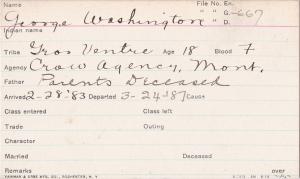 Name File No. En.
George Washington " " G. 667
Indian name " " D.
Tribe Gros Ventre Age 18 Blood F
Agency Crow Agency, Mont.
Father Parents Deceased
Arrived 2-28-'83 Departed 3-24-'87 Cause
Class entered Class left
Trade Outing
Character
Married Deceased
Remarks over